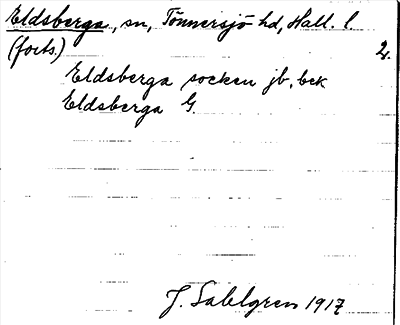 Eldsberga, sn, Tönnersjö hd, Hall. l.
(forts.) 2.
Eldsberga socken jb. bek
Eldsberga G.
J. Sahlgren 1917